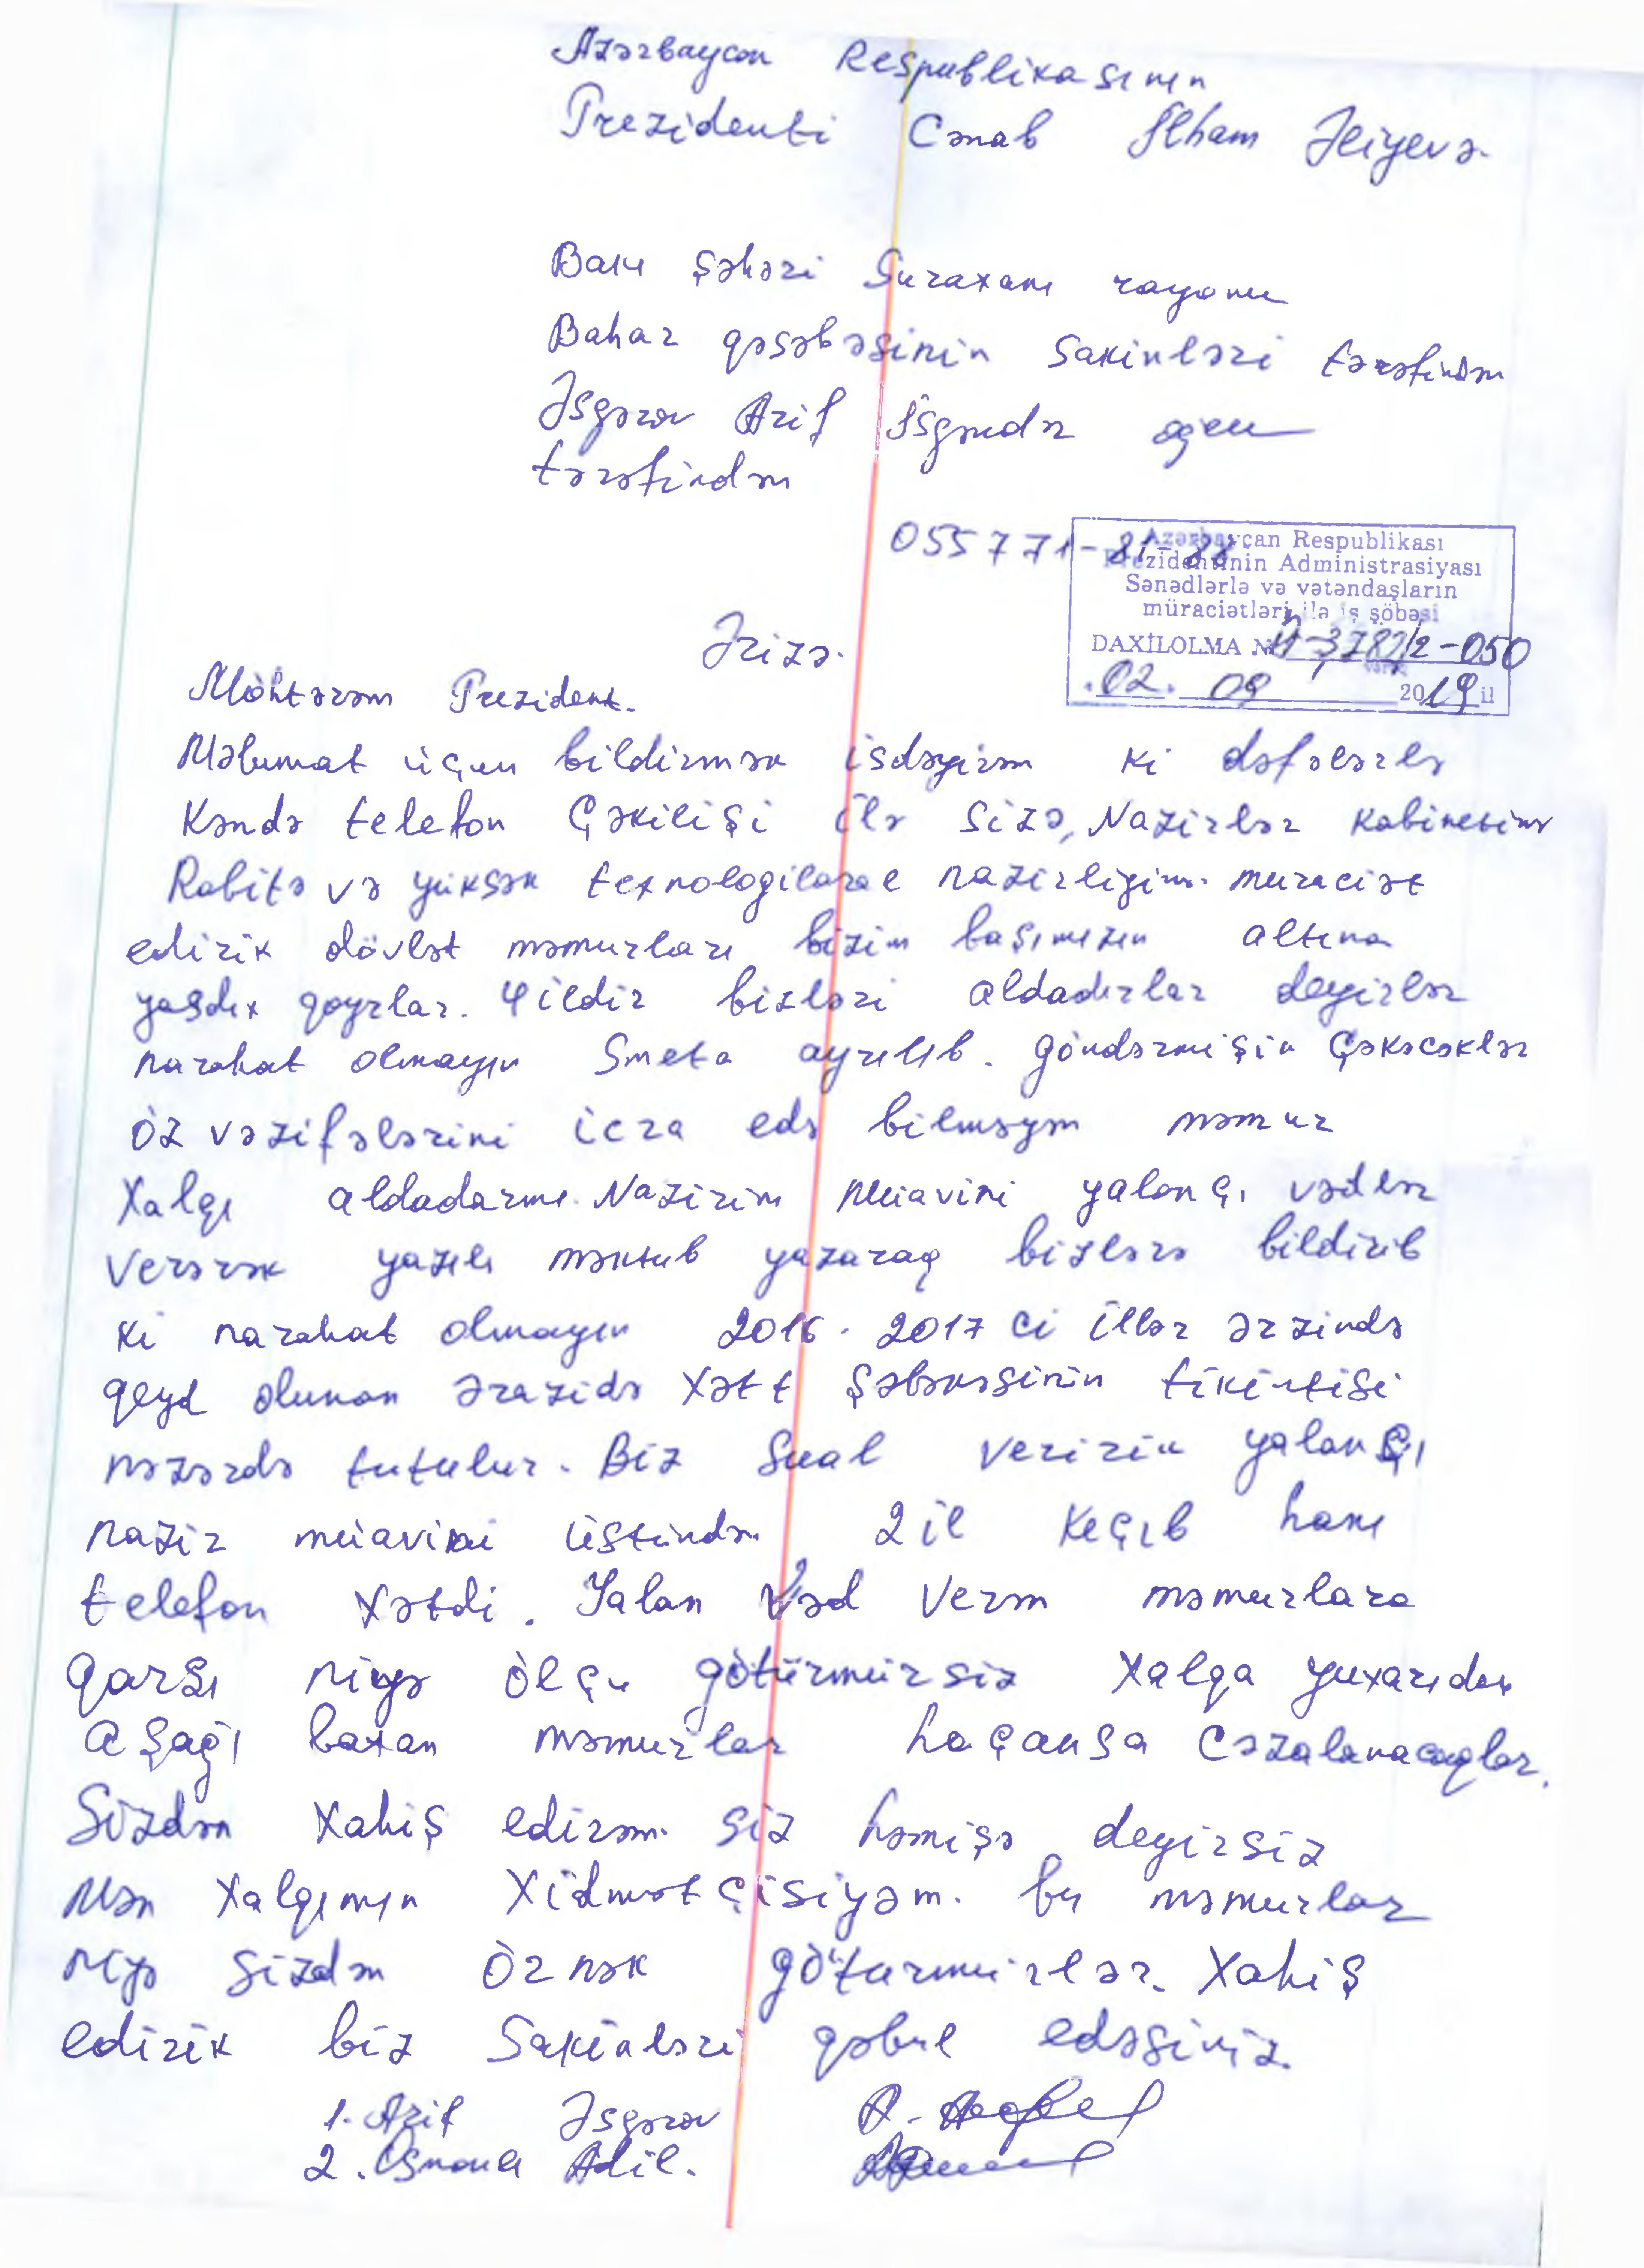 Azərbaycan Respublikasının
Prezidenti Cənab İlham Əliyevə.
Bakı şəhəri Suraxanı rayonu
Bahar qəsəbəsinin sakinləri tərəfindən
Əsgərov Arif İsgəndər oğlu
tərəfindən
055 771-81-88
Azərbaycan Respublikası
Prezidentinin Administrasiyası
Sənədlərlə və vətəndaşların
müraciətləri ilə iş şöbəsi
DAXİLOLMA № 3782/2-050
02. 09 2019 il
Ərizə.
Möhtərəm Prezident.
Məlumat üçün bildirmək isdəyirəm ki dəfələrlə
Kəndə telefon Çəkilişi ilə Sizə, Nazirlər Kabinetinə
Rabitə və yüksək texnologilaral nazirliyinə muraciət
edirik dövlət məmurları bizim başımızın altına
yasdıx qoyrlar. 4 ildir bizləri aldadırlar deyirlər
narahat olmayın Smeta ayrılıb. göndərmişin Çəkəcəklər
öz vəzifələrini icra edə bilməyən məmur
Xalqı aldadarmı. Nazirin müavini yalançı vədlər
Verərək yazılı məktub yazaraq bizlərə bildirib
ki narahat olmayın 2016. 2017 ci illər ərzində
qeyd olunan ərazidə xətt şəbəkəsinin tikintisi
nəzərdə tutulur. Biz Sual veririk yalançı
nazir müavini üstündən 2 il keçıb hanı
telefon xətdi. Yalan Vəd Verən məmurlara
qarşı niyə ölçu götürmürsiz Xalqa yuxarıdan
aşağı baxan məmurlar haçansa Cəzalanacaqlar.
Sizdən Xahiş edirəm. Siz həmişə deyirsiz
Mən Xalqımın Xidmətçisiyəm. bu məmurlar
niyə sizdən örnək götürmürlər. Xahiş
edirik biz Sakinləri qəbul edəsiniz.
1. Arif Əsgərov
2. Osmanlı Adil.